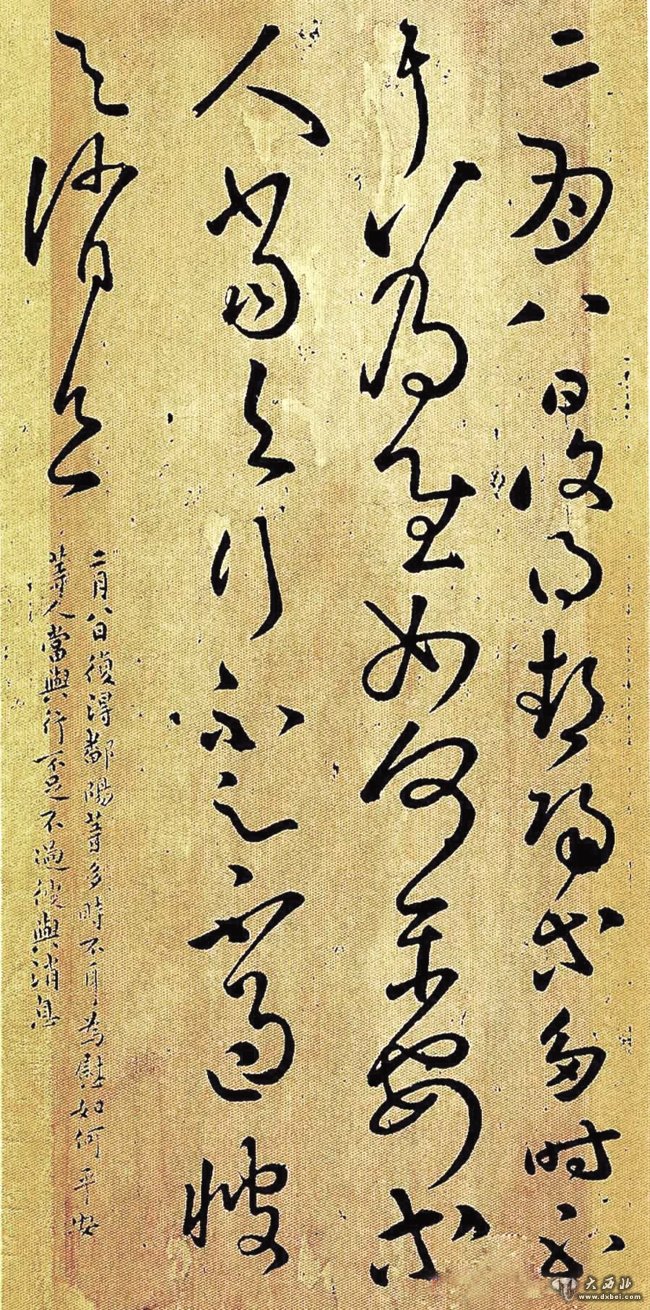 二月八日復得鄱陽等多時不
耳為慰如何平安等
人當與行不足不過復
與消息
二月八日復得鄱陽等多時不耳為慰如何平安
等人當與行不足不過復與消息
大西北
www.dxbei.com